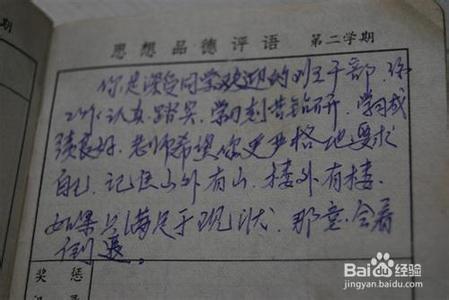 思想品德评语 第二学期
你是深受同学欢迎的 干部
工作认真、踏实,学习刻苦钻研,学习成
绩良好,老师希望你更严格地要求
自己,记住山外有山,楼外有楼,
如果只满足于现状,那 会
倒退。
奖惩
Baidu经验
jingyan.baidu.com